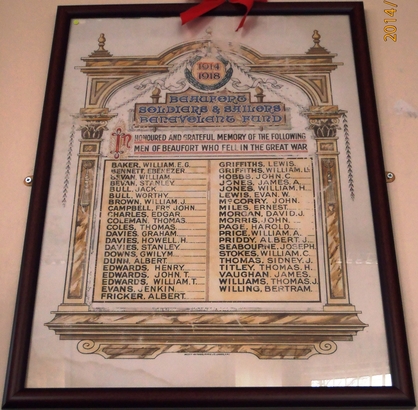 2014/
1914
1918
BEAUFORT
SOLDIERS & SAILORS
BENEVOLENT FUND
In HONOURED AND GRATEFUL MEMORY OF THE FOLLOWING
MEN OF BEAUFORT WHO FELL IN THE GREAT WAR
BAKER, WILLIAM E.G.
BENNETT, EBENEZER
BEVAN, WILLIAM
BEVAN, STANLEY
BULL, JACK
BULL, WORTHY
BROWN, WILLIAM J.
CAMPBELL, FRS JOHN
CHARLES, EDGAR
COLEMAN, THOMAS
COLES, THOMAS
DAVIES, GRAHAM
DAVIES, HOWELL, H.
DAVIES, STANLEY
DOWNS, GWILYM
DUNN, ALBERT
EDWARDS, HENRY
EDWARDS, JOHN T.
EDWARDS, WILLIAM T.
EVANS, JENKIN
FRICKER, ALBERT
GRIFFITHS, LEWIS,
GRIFFITHS, WILLIAM, D.
HOBBS, JOHN C.
JONES, JAMES A.
JONES, WILLIAM H.
LEWIS, EVAN W.
McCORRY, JOHN
MILES, ERNEST
MORGAN, DAVID, J.
MORRIS, JOHN
PAGE, HAROLD
PRICE, WILLIAM A.
PRIDDY, ALBERT J.
SEABOURNE, JOSEPH
STOKES, WILLIAM C.
THOMAS, SIDNEY, J.
TITLEY, THOMAS, H.
VAUGHAN, JAMES,
WILLIAMS, THOMAS J.
WILLING, BERTRAM.